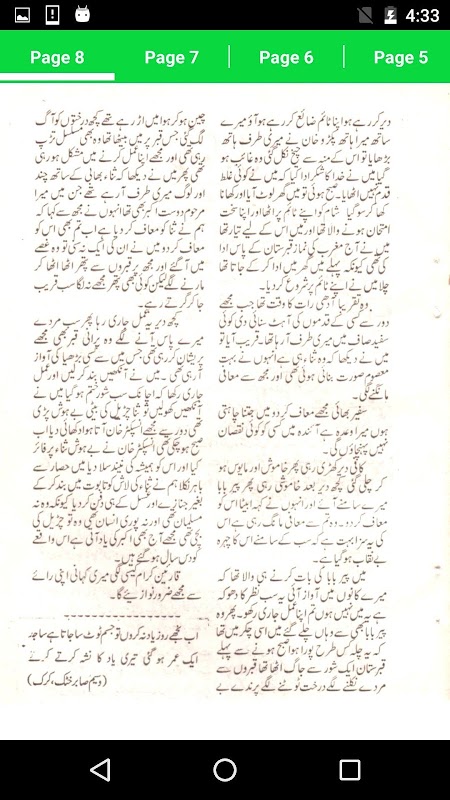 4:33
Page 8
Page 7
Page 6
Page 5
دیر کر رہے ہو اپنا ٹائم ضائع کر رہے ہو آؤ میرے
ساتھ میرا ہاتھ پکڑو خان نے میری طرف ہاتھ
بڑھایا تو اس کے منہ سے چیخ نکل گئی وہ غائب ہو
گیا میں نے خدا کا شکر ادا کیا کہ میں نے کوئی غلط
قدم نہیں اٹھایا۔ صبح ہوئی تو میں گھر لوٹ آیا اور کھانا
کھا کر سو گیا شام کو اپنے ٹائم پر اٹھا اور اپنا سخت
امتحان ہونے والا تھا اور میں اس کے لیے تیار تھا
میں نے آج مغرب کی نماز قبرستان کے پاس ادا
کی تھی کیونکہ پہلے میں گھر میں ادا کر کے جاتا تھا
چلا میں نے اپنے ٹائم پر شروع کر دیا۔
وہ تقریبا آدھی رات کا وقت تھا جب مجھے
دور سے کسی کے قدموں کی آہٹ سنائی دی کوئی
سفید صاف میں میری طرف آ رہا تھا۔ قریب آیا تو
میں نے دیکھا کہ وہ ثناء ہی ہے انہوں نے بہت
معصوم صورت بنائی ہوئی تھی اور مجھ سے معافی
مانگنے لگی۔
سفیر بھائی مجھے معاف کر دو میں جتنا چاہتی
ہوں میرا وعدہ ہے آئندہ میں کسی کو کوئی نقصان
نہیں پہنچاؤں گی۔
کافی دیر کھڑی رہی پھر خاموش اور مایوس ہو
کر چلی گئی کچھ دیر بعد خاموشی رہی پھر پیر بابا
میرے سامنے آئے اور انہوں نے کہا بیٹا اس کو
معاف کر دو۔ وہ تم سے معافی مانگ رہی ہے اس
کی یہ سزا بہت ہے کہ سب کے سامنے اس کا چہرہ
بے نقاب ہو گیا ہے۔
میں پیر بابا کی بات کرنے ہی والا تھا کہ
میرے کانوں میں آواز آئی یہ سب نظر کا دھوکہ
ہے یہ میں نہیں ہوں تم اپنا عمل جاری رکھو۔ پھر وہ
پیر بابا بھی سے وہاں چلے گئے میں اسی چکر میں تھا
کہ یہ چلہ کس طرح پورا ہوا صبح ہونے سے پہلے
قبرستان ایک شور سے جاگ اٹھا تھا قبروں سے
مردے نکلنے لگے درخت ٹوٹنے لگے پرندے بے
چین ہو کر ہوا میں اڑ رہے تھے کچھ درختوں کو آگ
لگ گئی جس قبر پر میں بیٹھا تھا وہ بھی مسلسل تڑپ
رہی تھی اور مجھے اپنا عمل کرنے میں مشکل ہو رہی
تھی پھر میں نے دیکھا کہ ثناء بھائی کے ساتھ چند
اور لوگ میری طرف آ رہے تھے جن میں میرا
مرحوم دوست اکبر بھی تھا انہوں نے مجھ سے کہا کہ
ہم نے ثنا کو معاف کر دیا ہے اب تم بھی اس کو
معاف کر دو میں نے ان کی ایک نہ سنی تو وہ غصے
میں آ گئے اور مجھ پر قبروں سے پتھر اٹھا اٹھا کر
مارنے لگے لیکن کوئی بھی پتھر مجھے نہ لگا سب قریب
جا کر گرتے رہے۔
کچھ دیر یہ عمل جاری رہا پھر سب مردے
میرے پاس آنے لگے وہ پرانی قبر بھی مجھے
پریشان کر رہی تھی جس میں سے کسی بڑھیا کی آواز
آ رہی تھی۔ میں نے آنکھیں بند کر لیں اور عمل
جاری رکھا کہ اچانک سب شور ختم ہو گیا میں نے
آنکھیں کھولیں تو ثنا چڑیل کی بیٹی بے ہوش پڑی
تھی دور سے مجھے انسپکٹر خان آتا ہوا دکھائی دیا اب
صبح ہو چکی تھی انسپکٹر خان نے بے ہوش ثناء پر فائر
کیا اور اس کو ہمیشہ کی نیند سلا دیا میں حصار سے
باہر نکلا ہم نے ثناء کی لاش کو تابوت میں بند کر کے
بغیر جنازے اور غسل کے ہی دفن کر دیا کیونکہ وہ نہ
مسلمان تھی اور نہ پوری انسان تھی وہ تو چڑیل کی
بچی تھی مجھے آج بھی اکبر کی یاد آتی ہے اس واقعے
کو دس سال ہو گئے ہیں۔
قارئین کرام کیسی لگی میری کہانی اپنی رائے
سے مجھے ضرور نوازیئے گا۔
اب تجھے روز یاد نہ کروں تو جسم ٹوٹ سا جاتا ہے ساجد
ایک عمر ہو گئی تیری یاد کا نشہ کرتے کرتے
(وسیم صابر خٹک، کرک)